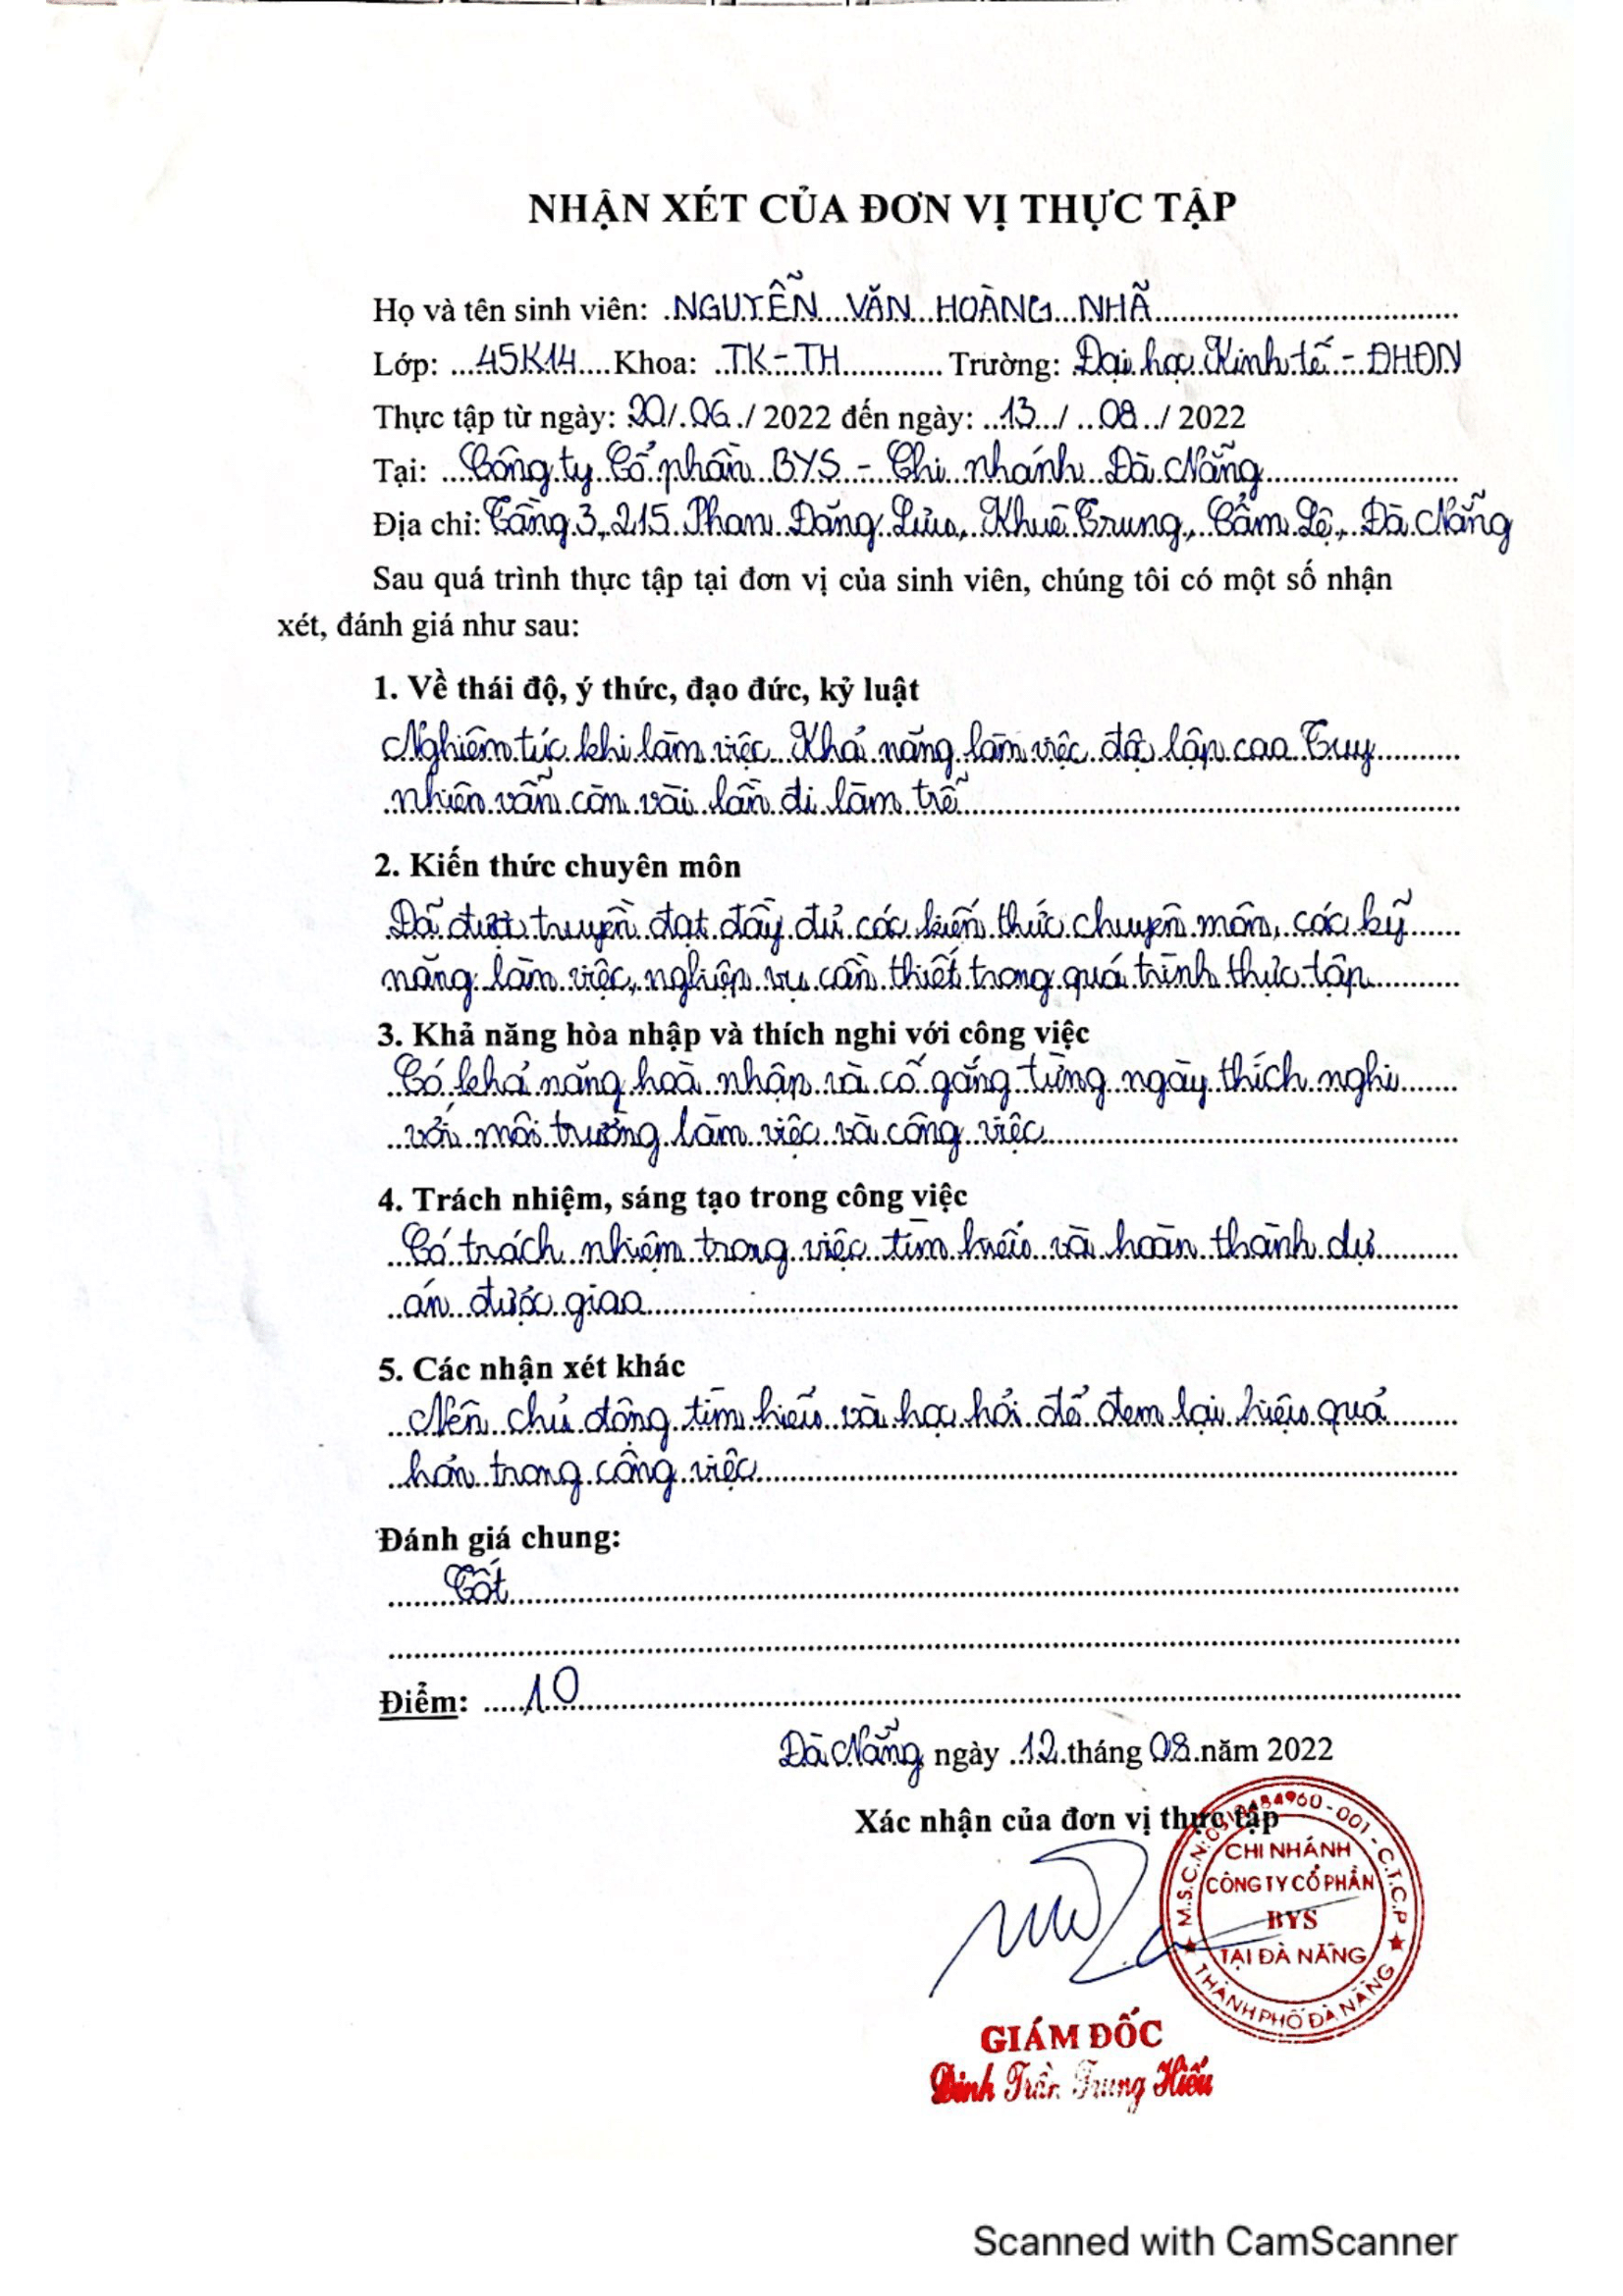 NHẬN XÉT CỦA ĐƠN VỊ THỰC TẬP
Họ và tên sinh viên: NGUYỄN VĂN HOÀNG NHÃ
Lớp: 45K14 Khoa: TK-TH Trường: Đại học Kinh tế - ĐHĐN
Thực tập từ ngày: 20/06/2022 đến ngày: 13/08/2022
Tại: Công ty Cổ phần BYS - Chi nhánh Đà Nẵng
Địa chỉ: Tầng 3, 215 Phan Đăng Lưu, Khuê Trung, Cẩm Lệ, Đà Nẵng
Sau quá trình thực tập tại đơn vị của sinh viên, chúng tôi có một số nhận
xét, đánh giá như sau:
1. Về thái độ, ý thức, đạo đức, kỷ luật
Nghiêm túc khi làm việc. Khả năng làm việc độc lập cao. Tuy
nhiên vẫn còn vài lần đi làm trễ
2. Kiến thức chuyên môn
Đã được truyền đạt đầy đủ các kiến thức chuyên môn, các kỹ
năng làm việc, nghiệp vụ cần thiết trong quá trình thực tập
3. Khả năng hòa nhập và thích nghi với công việc
Có khả năng hoà nhập và cố gắng từng ngày thích nghi
với môi trường làm việc và công việc
4. Trách nhiệm, sáng tạo trong công việc
Có trách nhiệm trong việc tìm hiểu và hoàn thành dự
án được giao
5. Các nhận xét khác
Nên chủ động tìm hiểu và học hỏi để đem lại hiệu quả
hơn trong công việc
Đánh giá chung:
Tốt
Điểm: 10
Đà Nẵng ngày 12 tháng 08 năm 2022
Xác nhận của đơn vị thực tập
CHI NHÁNH
CÔNG TY CỔ PHẦN
BYS
TẠI ĐÀ NẴNG
THÀNH PHỐ ĐÀ NẴNG
GIÁM ĐỐC
Đinh Trần Trung Hiếu
Scanned with CamScanner